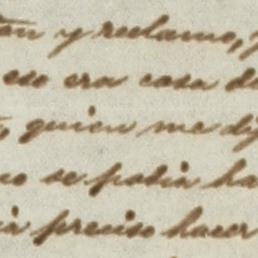 y reclamo,
eso era cosa d
quien me dij
no se podia ha
ia preciso hacer